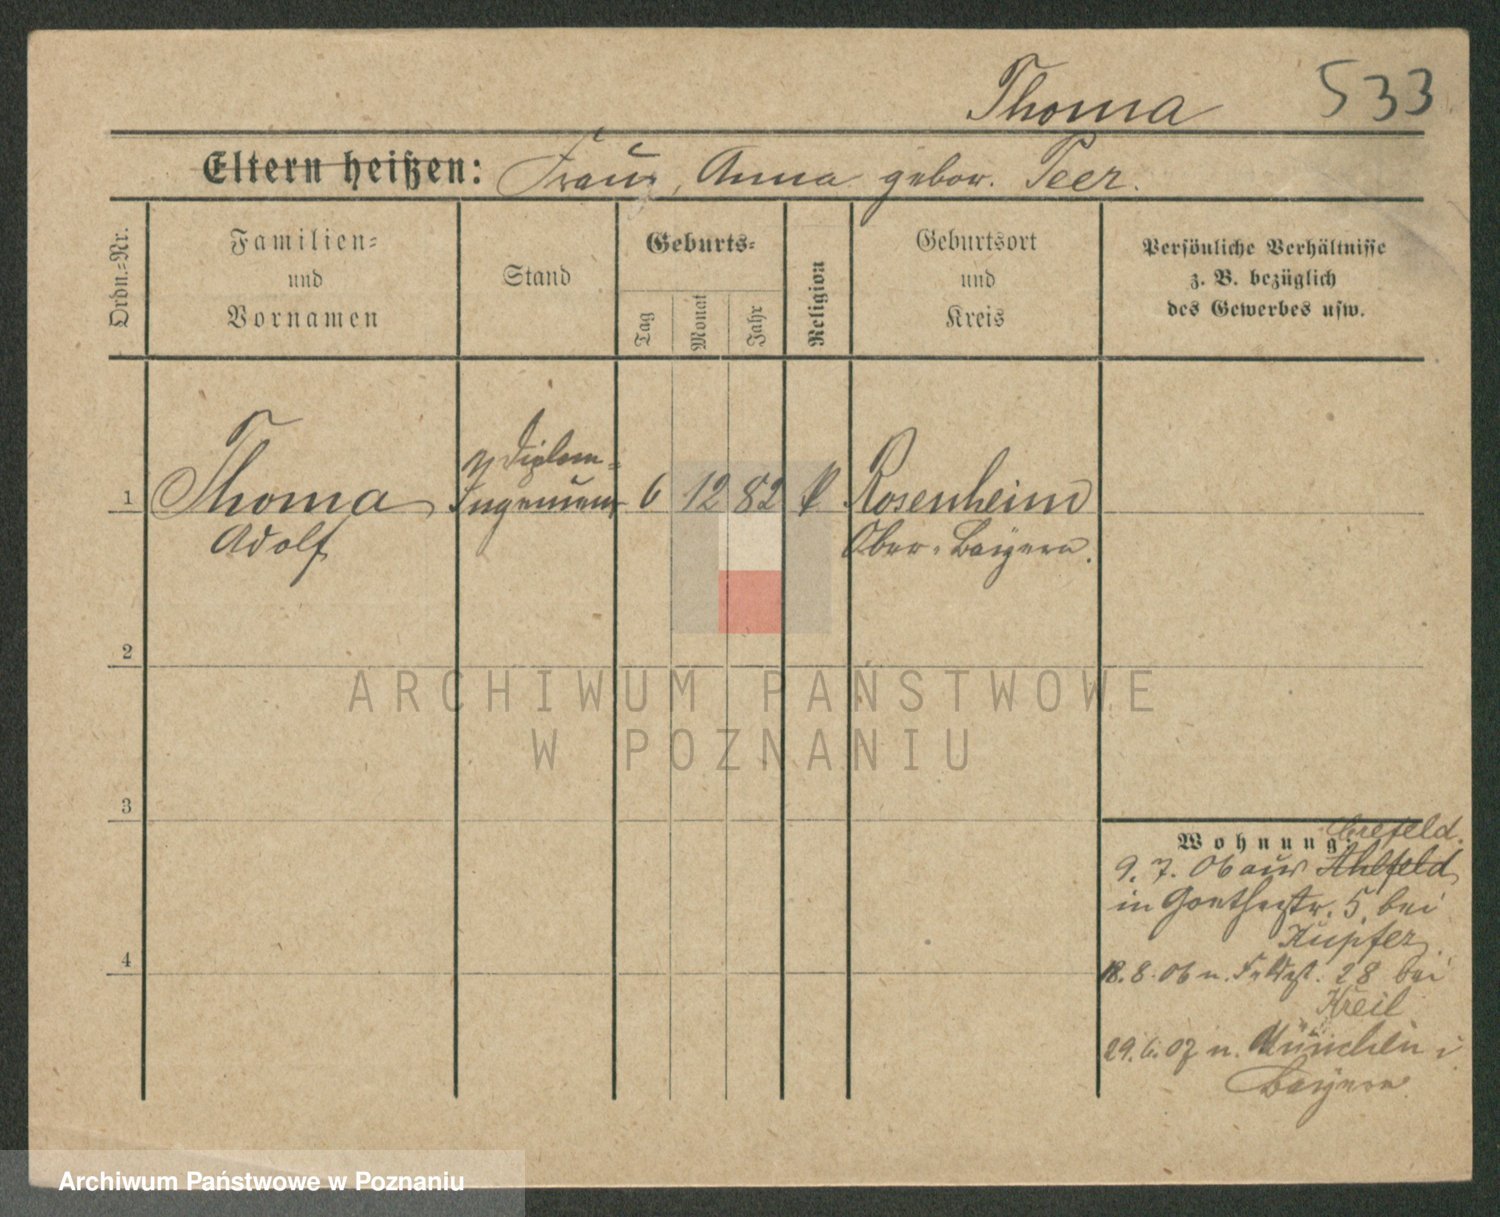 Thoma 533
Eltern heißen: Franz, Anna gebor. Peer.
Ordn.-Nr.
Familien-
und
Vornamen
Stand
Geburts-
Tag
Monat
Jahr
Religion
Geburtsort
und
Kreis
Persönliche Verhältnisse
z. B. bezüglich
des Gewerbes usw.
Diplom-
1 Thoma Ingenieur 6 12 82 k. Rosenheim
Adolf Ober-Bayern.
2
ARCHIWUM PAŃSTWOWE
W POZNANIU
3
Wohnung: Crefeld.
9. 7. 06 aus Ahlfeld
in Goethestr. 5, bei
Kupfer.
4
18. 8. 06 n. Feldst. 28 bei
Kreil
29. 6. 07 n. München i
Bayern.
Archiwum Państwowe w Poznaniu